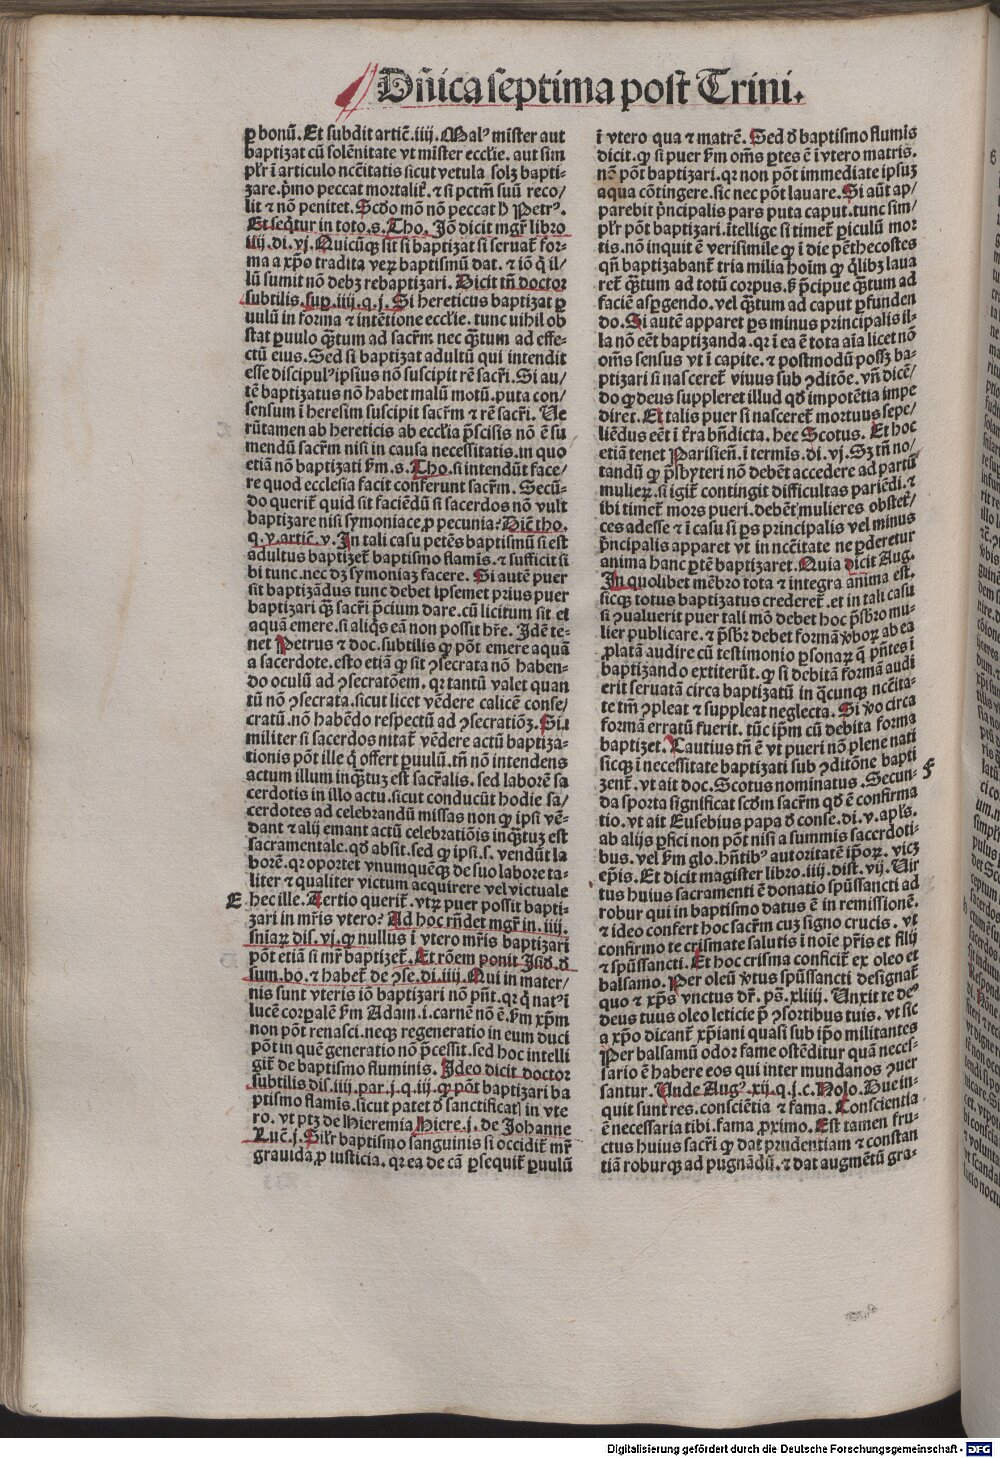 Dñica septima post Trini.
ꝑ bonū. Et subdit artic̄. iiij. Malꝰ mister aut
baptizat cū solēnitate vt mister eccl̄ie. aut sim
pl̄r ī articulo nc̄citatis sicut vetula solꝫ bapti-
zare. p̄mo peccat mortalit̄. ⁊ si pctm̄ suū reco/
lit ⁊ nō penitet. Scd̄o mō nō peccat h̄ Petrꝰ.
Et seq̄tur in toto. s. Tho. Jō dicit mgr̄ libro
iiij. di. vj. Quicūqꝫ sit si baptizat si seruat̄ for-
ma a xp̄o tradita veꝝ baptismū dat. ⁊ iō q̇ il/
lū sumit nō debꝫ rebaptizari. Dicit tn̄ doctor
subtilis. sup̄. iiij. q. j. Si hereticus baptizat ꝑ
uulū in forma ⁊ intētione eccl̄ie. tunc uihil ob
stat ꝑuulo q̄ꝫtum ad sacr̄m. nec q̄ꝫtum ad effe-
ctū eius. Sed si baptizat adultū qui intendit
esse discipulꝰ ipsius nō suscipit rē sacr̄i. Si au/
tē baptizatus nō habet malū motū. puta con/
sensum ī heresim suscipit sacr̄m ⁊ rē sacr̄i. Ue
rūtamen ab hereticis ab eccl̄ia p̄scisis nō ē su
mendū sacr̄m nisi in causa necessitatis. in quo
etiā nō baptizati ẜm. s. Tho. si intendūt face/
re quod ecclesia facit conferunt sacr̄m. Secū-
do querit̄ quid sit faciēdū si sacerdos nō vult
baptizare nisi symoniace ꝓ pecunia? Dic̄t tho.
q. v. artic̄. v. In tali casu petēs baptismū si est
adultus baptizet̄ baptismo flamis. ⁊ sufficit si
bi tunc. nec dꝫ symoniaꝫ facere. Si autē puer
sit baptizādus tunc debet ipsemet prius puer
baptizari q̄ꝫ sacr̄i p̄cium dare. cū licitum sit ei
aquā emere. si aliq̇s eā non possit hr̄e. Jdē te-
net Petrus ⁊ doc. subtilis ꝙ pōt emere aquā
a sacerdote. esto etiā ꝙ sit ꝯsecrata nō haben-
do oculū ad ꝯsecratōem. qꝛ tantū valet quan
tū nō ꝯsecrata. sicut licet vēdere calicē conse/
cratū. nō habēdo respectū ad ꝯsecratiōꝫ. Si.ı
militer si sacerdos nitat̄ vēdere actū baptiza-
tionis pōt ille q̇ offert ꝑuulū. tn̄ nō intendens
actum illum inq̄ꝫtuꝫ est sacr̄alis. sed laborē sa
cerdotis in illo actu. sicut conducūt hodie sa/
cerdotes ad celebrandū missas non ꝙ ipsi vē-
dant ⁊ alij emant actū celebratiōis inq̄ꝫtuꝫ est
sacramentale. qd̄ absit. sed ꝙ ipsi. s. vendūt la
borē. qꝛ oportet vnumquēqꝫ de suo labore ta-
liter ⁊ qualiter victum acquirere vel victuale
E hec ille. Tertio querit̄. vtꝝ puer possit bapti-
zari in mr̄is vtero? Ad hoc rn̄det mgr̄ in. iiij.
sn̄iaꝝ dis. vj. ꝙ nullus ī vtero mr̄is baptizari
pōt etiā si mr̄ baptizet̄. Et rōem ponit Jsid. d̄
sum. bo. ⁊ habet̄ de ꝯse. di. iiij. Qui in mater/
nis sunt vteris iō baptizari nō pn̄t. qꝛ q̇ natꝰ ī
lucē corꝑalē ẜm Adam. i. carnē nō ē. ẜm xp̄m
non pōt renasci. neqꝫ regeneratio in eum duci
pōt in quē generatio nō p̄cessit. sed hoc intelli
git̄ de baptismo fluminis. Jdeo dicit doctor
subtilis dis. iiij. par. j. q. iij. ꝙ pōt baptizari ba
ptismo flamis. sicut patet d̄ sanctificat̄ in vte
ro. vt ptꝫ de Hieremia Hiere. j. de Johanne
Luc̄. j. Sil̄r baptismo sanguinis si occidit̄ mr̄
grauida ꝓ iusticia. qꝛ ea de cā ꝑsequit̄ ꝑuulū
ī vtero qua ⁊ matrē. Sed d̄ baptismo flumis
dicit. ꝙ si puer ẜm om̄s ꝑtes ē ī vtero matris.
nō pōt baptizari. qꝛ non pōt immediate ipsuꝫ
aqua cōtingere. sic nec pōt lauare. Si aūt ap/
parebit p̄ncipalis pars puta caput. tunc sim/
pl̄r pōt baptizari. ītellige si timet̄ piculū mor
tis. nō inquit ē verisimile ꝙ ī die pēthecostes
qn̄ baptizabant̄ tria milia hoīm ꝙ q̄libꝫ laua
ret̄ q̄ꝫtum ad totū corpus. ẜ p̄cipue q̄ꝫtum ad
faciē aspgendo. vel q̄ꝫtum ad caput ꝑfunden
do. Si autē apparet ꝑs minus principalis il-
la nō eēt baptizanda. qꝛ ī ea ē tota aīa licet nō
om̄s sensus vt ī capite. ⁊ postmodū possꝫ ba-
ptizari si nasceret̄ viuus sub ꝯditōe. vn̄ dicē/
do ꝙ deus suppleret illud qd̄ impotētia impe
diret. Et talis puer si nasceret̄ mortuus sepe/
liēdus eēt ī t̄ra bn̄dicta. hec Scotus. Et hoc
etiā tenet Parisien̄. ī termīs. di. vj. Sꝫ tn̄ no/
tandū ꝙ p̄sbyteri nō debēt accedere ad partū
mulieꝝ. si igit̄ contingit difficultas pariēdi. ⁊
ibi timet̄ mors pueri. debēt mulieres obstet̄/
ces adesse ⁊ ī casu si ꝑs principalis vel minus
p̄ncipalis apparet vt in nc̄citate ne ꝑderetur
anima hanc ꝑtē baptizaret. Quia dicit Aug.
In quolibet mēbro tota ⁊ integra anima est.
sicqꝫ totus baptizatus crederet̄. et in tali casu
si ꝯualuerit puer tali mō debet hoc p̄sbro mu-
lier publicare. ⁊ p̄sbr̄ debet formā ꝟboꝝ ab ea
ꝓlatā audire cū testimonio ꝑsonaꝝ q̄ pn̄tes ī
baptizando extiterūt. ꝙ si debitā formā audi
erit seruatā circa baptizatū in q̄cunqꝫ nc̄cita-
te tm̄ ꝯpleat ⁊ suppleat neglecta. Si ꝟo circa
formā erratū fuerit. tūc ip̄m cū debita forma
baptizet. Cautius tn̄ ē vt pueri nō plene nati
sicqꝫ ī necessitate baptizati sub ꝯditōne bapti
F zent̄. vt ait doc. Scotus nominatus. Secun-
da sporta significat scd̄m sacr̄m qd̄ ē confirma
tio. vt ait Eusebius papa d̄ conse. di. v. apl̄s.
ab alijs ꝑfici non pōt nisi a summis sacerdoti-
bus. vel ẜm glo. hn̄tibꝰ autoritatē ip̄oꝝ. vicꝫ
ep̄is. Et dicit magister libro. iiij. dist. vij. Uir
tus huius sacramenti ē donatio sp̄ussancti ad
robur qui in baptismo datus ē in remissionē.
⁊ ideo confert hoc sacr̄m cuꝫ signo crucis. vt
confirmo te crismate salutis ī noīe pr̄is et filij
⁊ sp̄ussancti. Et hoc crisma conficit̄ ex oleo et
balsamo. Per oleū ꝟtus sp̄ussancti designat̄
quo ⁊ xp̄s vnctus dr̄. ps̄. xliiij. Unxit te deꝰ
deus tuus oleo leticie p̄ ꝯsortibus tuis. vt sic
a xp̄o dicant̄ xp̄iani quasi sub ip̄o militantes
Per balsamū odor fame ostēditur quā neces-
sario ē habere eos qui inter mundanos ꝯuer
santur. Unde Augꝰ. xij. q. j. c. Nolo. Due in-
quit sunt res. consciētia ⁊ fama. Conscientia
ē necessaria tibi. fama ꝓximo. Est tamen fru-
ctus huius sacr̄i ꝙ dat prudentiam ⁊ constan
tiā roburqꝫ ad pugnādū. ⁊ dat augmētū gra-
Digitalisierung gefördert durch die Deutsche Forschungsgemeinschaft - DFG